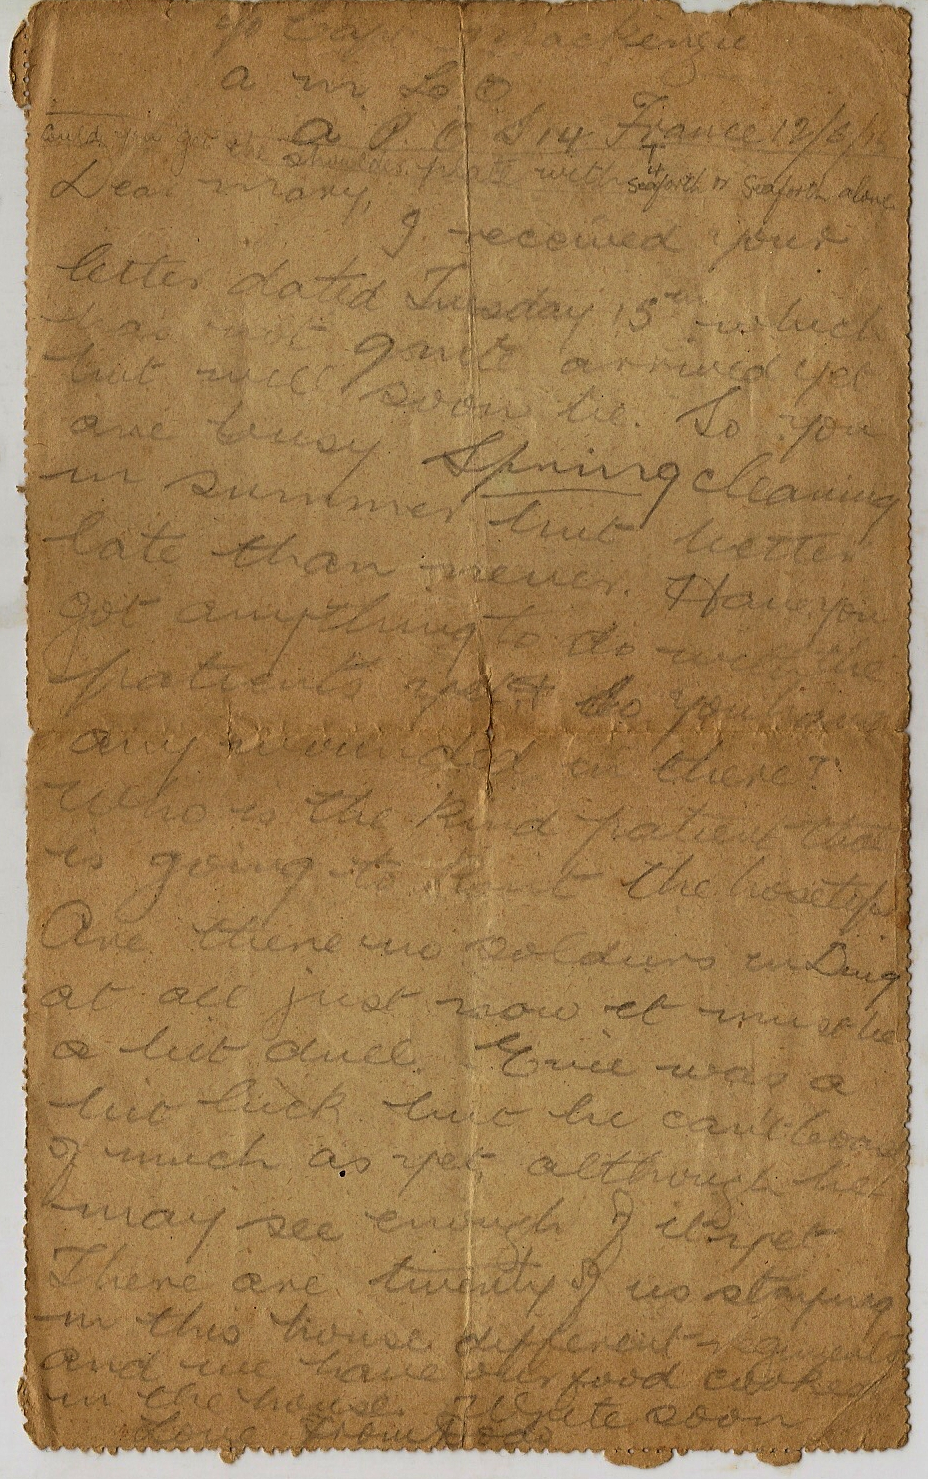 c/o Capt Mackenzie
a m L O
A. P. O S 14 France 12/6/
could you get me shoulder plate with 4 Seaforth or Seaforth alone
Dear Mary,
I received your
letter dated Tuesday 15th which
has not arrived yet
but will soon be. So you
are busy Spring cleaning
in summer but better
late than never. Have you
got anything to do with the
patients yet & do you have
any wounded in there?
Who is the kind patient that
is going to knit the hosetops
Are there no soldiers in Ding
at all just now it must be
a bit dull. was a
but luck but he can't boast
of much as yet although he
may see enough of it yet
There are twenty of us staying
in this house different regiments
and we have our food cooked
in the house. Write soon
Love from